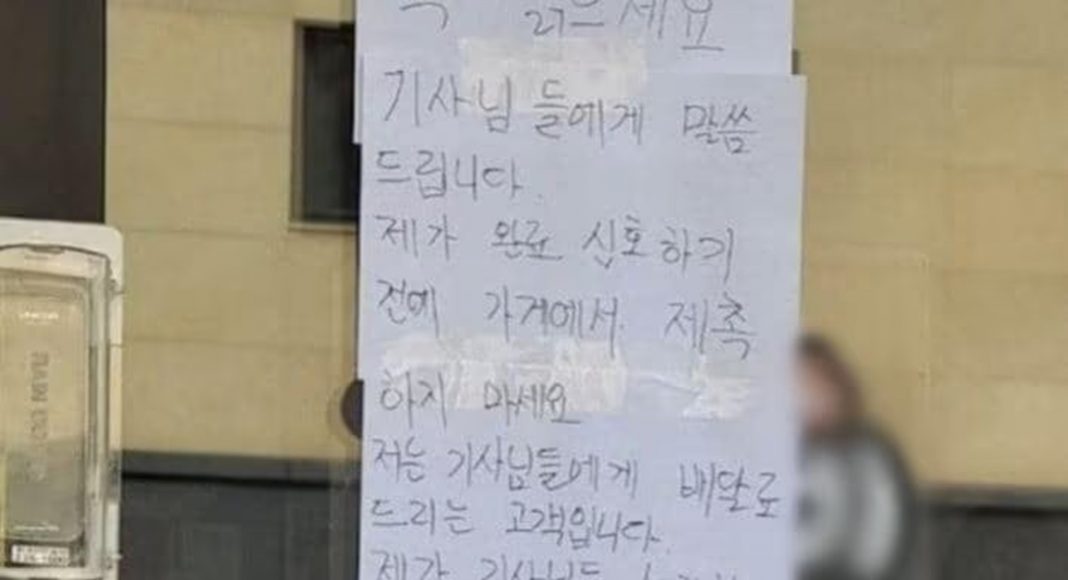 꼭 읽으세요
기사님들에게 말씀
드립니다.
제가 완료 신호하기
전에 가게에서 제촉
하지 마세요
저는 기사님들에게 배달료
드리는 고객입니다.
제가 기사님들